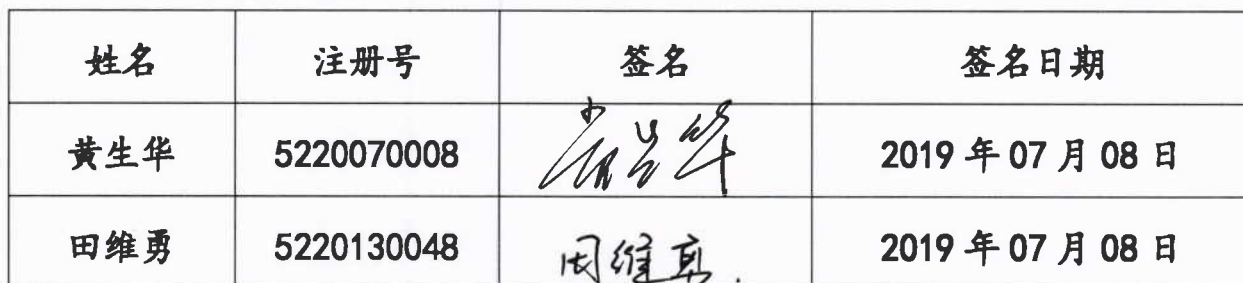 姓名 注册号 签名 签名日期
黄生华 5220070008 2019 年 07 月 08 日
田维勇 5220130048 2019 年 07 月 08 日